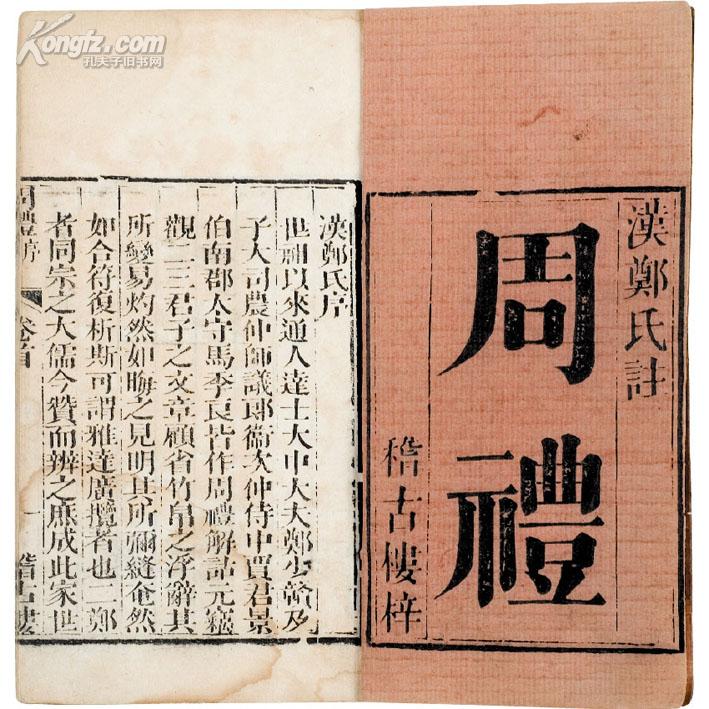 Kongfz.com
孔夫子旧书网
漢鄭氏註
周禮
稽古樓梓
漢鄭氏序
世祖以來通人達士大中大夫鄭少贛及
子大司農仲師議郎衞次仲侍中賈君景
伯南郡太守馬季長皆作周禮解詁元竊
觀二三君子之文章顧省竹帛之浮辭其
所變易灼然如晦之見明其所彌縫奄然
如合符復析斯可謂雅達廣攬者也二鄭
者同宗之大儒今贊而辨之庶成此家世
周禮序 卷首 一 稽古樓